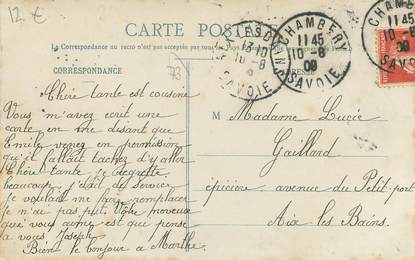 12 €
CARTE POSTALE
La Correspondance au recto n'est pas acceptée par tous
CORRESPONDANCE
73
CHAMBERY
11 45
10-8
09
SAVOIE
CHAMBERY
11 45
10-8
SAVOIE
10-8
SAVOIE
Chère tante et cousine
Vous m'avez écrit une
carte en me disant que
Emile venez en permission
qu'il fallait tachez d'y aller
Chère tante je regrette
beaucoup j'était de service
je voulait me faire remplacer
je n'ai pas put. Votre
qui vous aime et que pense
a vous Joseph
Bien le bonjour a Marthe
M Madame Lucie
Gaillard
épicière avenue du Petit port
Aix les Bains.